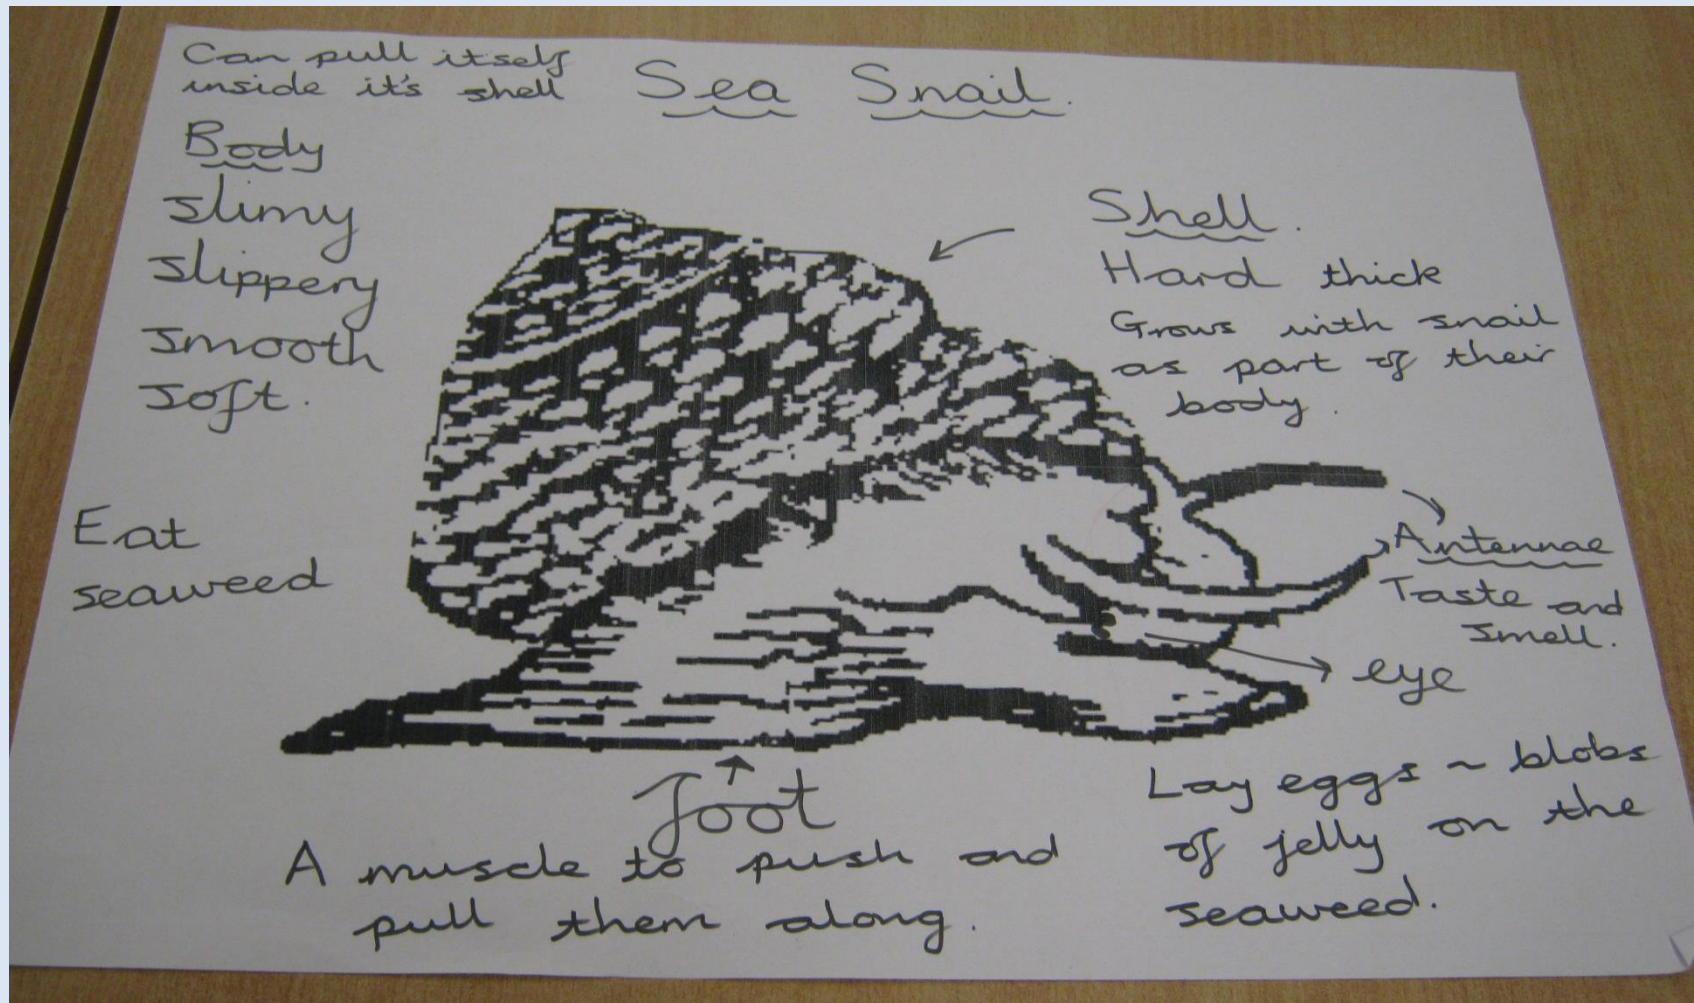 Can pull itself
inside it's shell
Sea Snail.
Body
slimy
slippery
smooth
soft.
Shell.
Hard thick
Grows with snail
as part of their
body.
Eat
seaweed
Antennae
Taste and
smell.
eye
foot
A muscle to push and
pull them along.
Lay eggs ~ blobs
of jelly on the
seaweed.